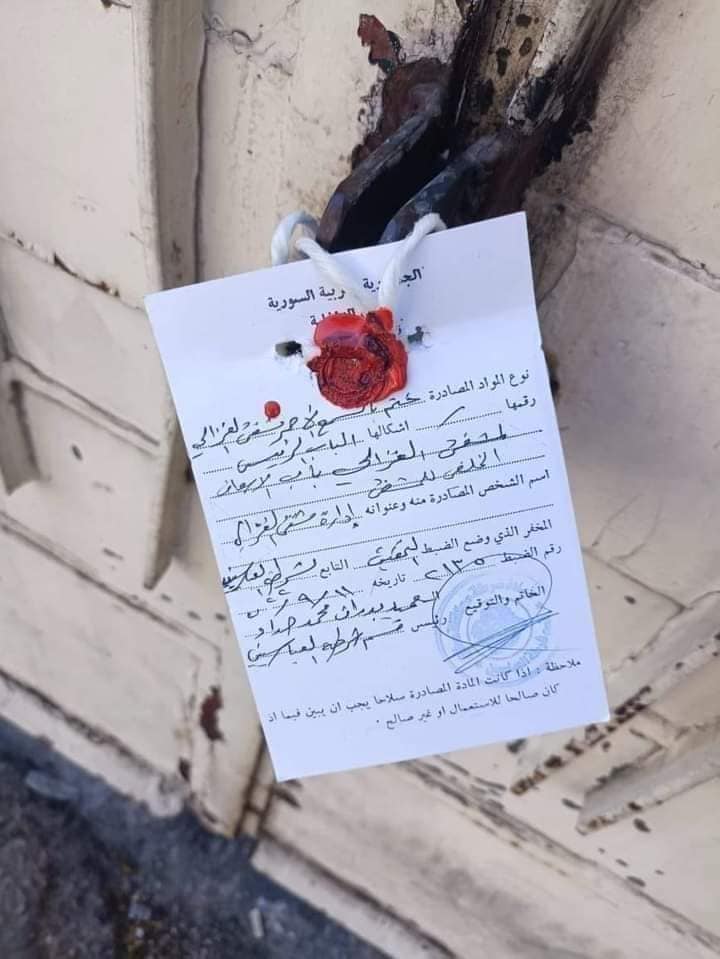 الجمهورية العربية السورية
نوع المواد المصادرة ختم بالشمع الاحمر مشفى الغزالي
رقمها / اشكالها الباب الرئيسي
لمشفى الغزالي باب الاسعاف
الخلفي للمشفى
اسم الشخص المصادرة منه وعنوانه إدارة مشفى الغزالي
المخفر الذي وضع الضبط التابع لشرطة
رقم الضبط ٢١٣٥ تاريخه ١١/٩/
الخاتم والتوقيع العميد محمد حداد
رئيس قسم شرطة
ملاحظة : اذا كانت المادة المصادرة سلاحا يجب ان يبين فيما اذ
كان صالحا للاستعمال او غير صالح .